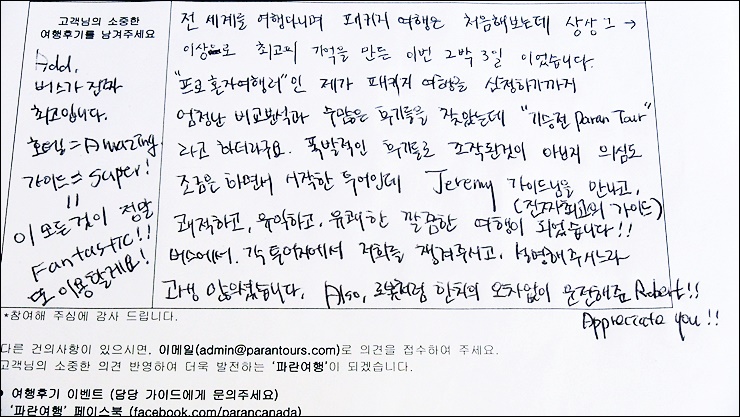 고객님의 소중한
여행후기를 남겨주세요
Add,
버스가 진짜
최고입니다.
호텔 = Amazing
가이드 = Super!
=
이 모든것이 정말
Fantastic!!
또 이용할게요!
전 세계를 여행다니며 패키지 여행은 처음해보는데 상상 그 →
이상으로 최고의 기억을 만든 이번 2박 3일 이었습니다.
"프로혼자여행러"인 제가 패키지 여행을 선정하기까지
엄청난 비교분석과 수많은 후기들을 찾았는데 "기승전 Paran Tour"
라고 하더라구요. 폭발적인 후기들로 조작된것이 아닌지 의심도
조금은 하면서 시작한 투어인데 Jeremy 가이드님을 만나고,
(진짜최고의 가이드)
쾌적하고, 유익하고, 유쾌한 깔끔한 여행이 되었습니다!!
버스에서, 각 투어지에서 저희를 챙겨주시고, 설명해주시느라
고생 많으셨습니다. Also, 로봇처럼 한치의 오차없이 운전해준 Robert!!
Appreciate you!!
*참여해 주심에 감사 드립니다.
다른 건의사항이 있으시면, 이메일(admin@parantours.com)로 의견을 접수하여 주세요.
고객님의 소중한 의견 반영하여 더욱 발전하는 '파란여행'이 되겠습니다.
● 여행후기 이벤트 (담당 가이드에게 문의주세요)
'파란여행' 페이스북 (facebook.com/parancanada)